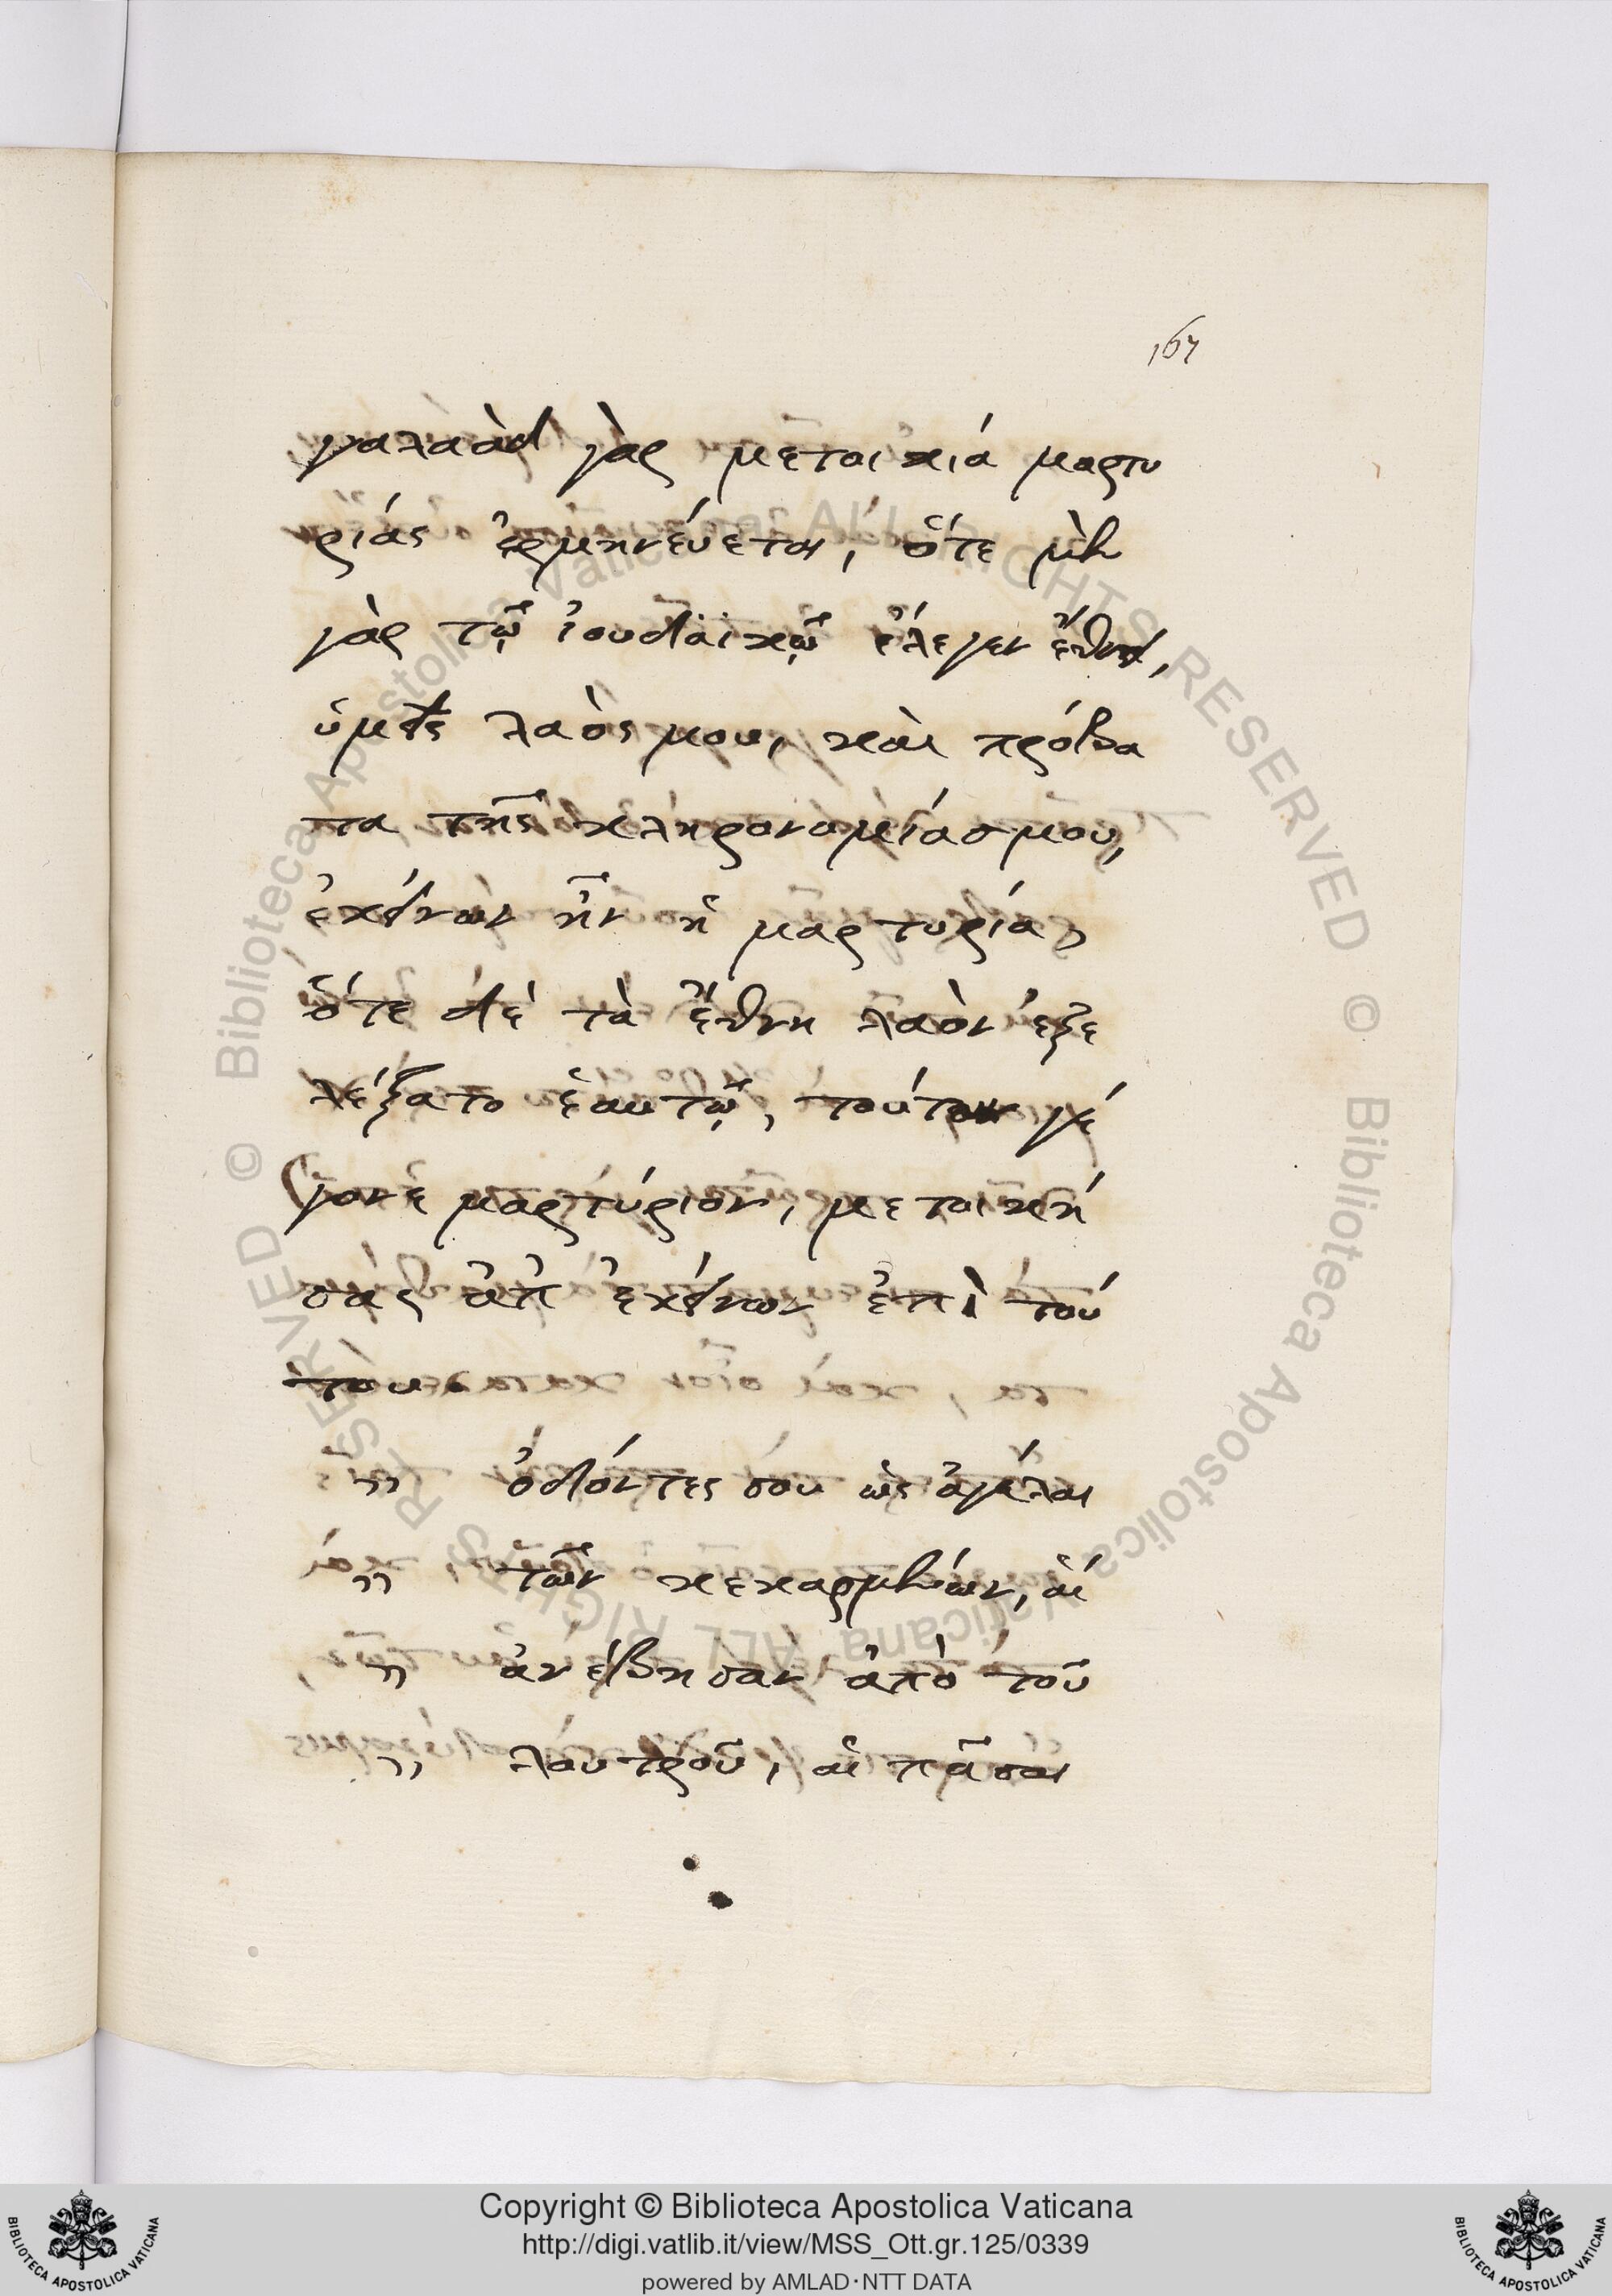 167
γαλαὰδ γὰρ μετοικία μαρτυ
ρίας ἑρμηνεύεται, ὅτε μὲν
γὰρ τῷ ἰουδαϊκῷ ἔλεγεν ἔθνει,
ὑμεῖς λαός μου, καὶ πρόβα
τα τῆς κληρονομίασ μου,
ἐκείνων ἦν ἡ μαρτυρία,
ὅτε δὲ τὰ ἔθνη λαὸν ἐξε
λέξατο ἑαυτῷ, τούτων γέ
γονε μαρτύριον, μετοικῆ
σας ἀπ ἐκείνων ἐπὶ τού
τους
,, ὀδόντες σου ὡς ἀγέλαι
,, τῶν κεκαρμένων, αἵ
,, ἀνέβησαν ἀπὸ τοῦ
,, λουτροῦ, αἱ πᾶσαι
Biblioteca Apostolica Vaticana ALL RIGHTS RESERVED ©
Biblioteca Apostolica Vaticana ALL RIGHTS RESERVED ©
BIBLIOTECA APOSTOLICA VATICANA
Copyright © Biblioteca Apostolica Vaticana
http://digi.vatlib.it/view/MSS_Ott.gr.125/0339
powered by AMLAD·NTT DATA
BIBLIOTECA APOSTOLICA VATICANA